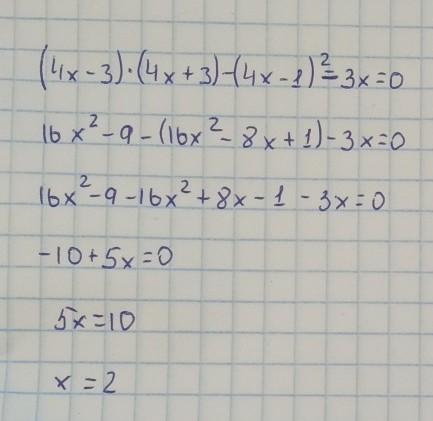 (4x-3)·(4x+3)-(4x-1)²=3x=0
16x²-9-(16x²-8x+1)-3x=0
16x²-9-16x²+8x-1-3x=0
-10+5x=0
5x=10
x=2